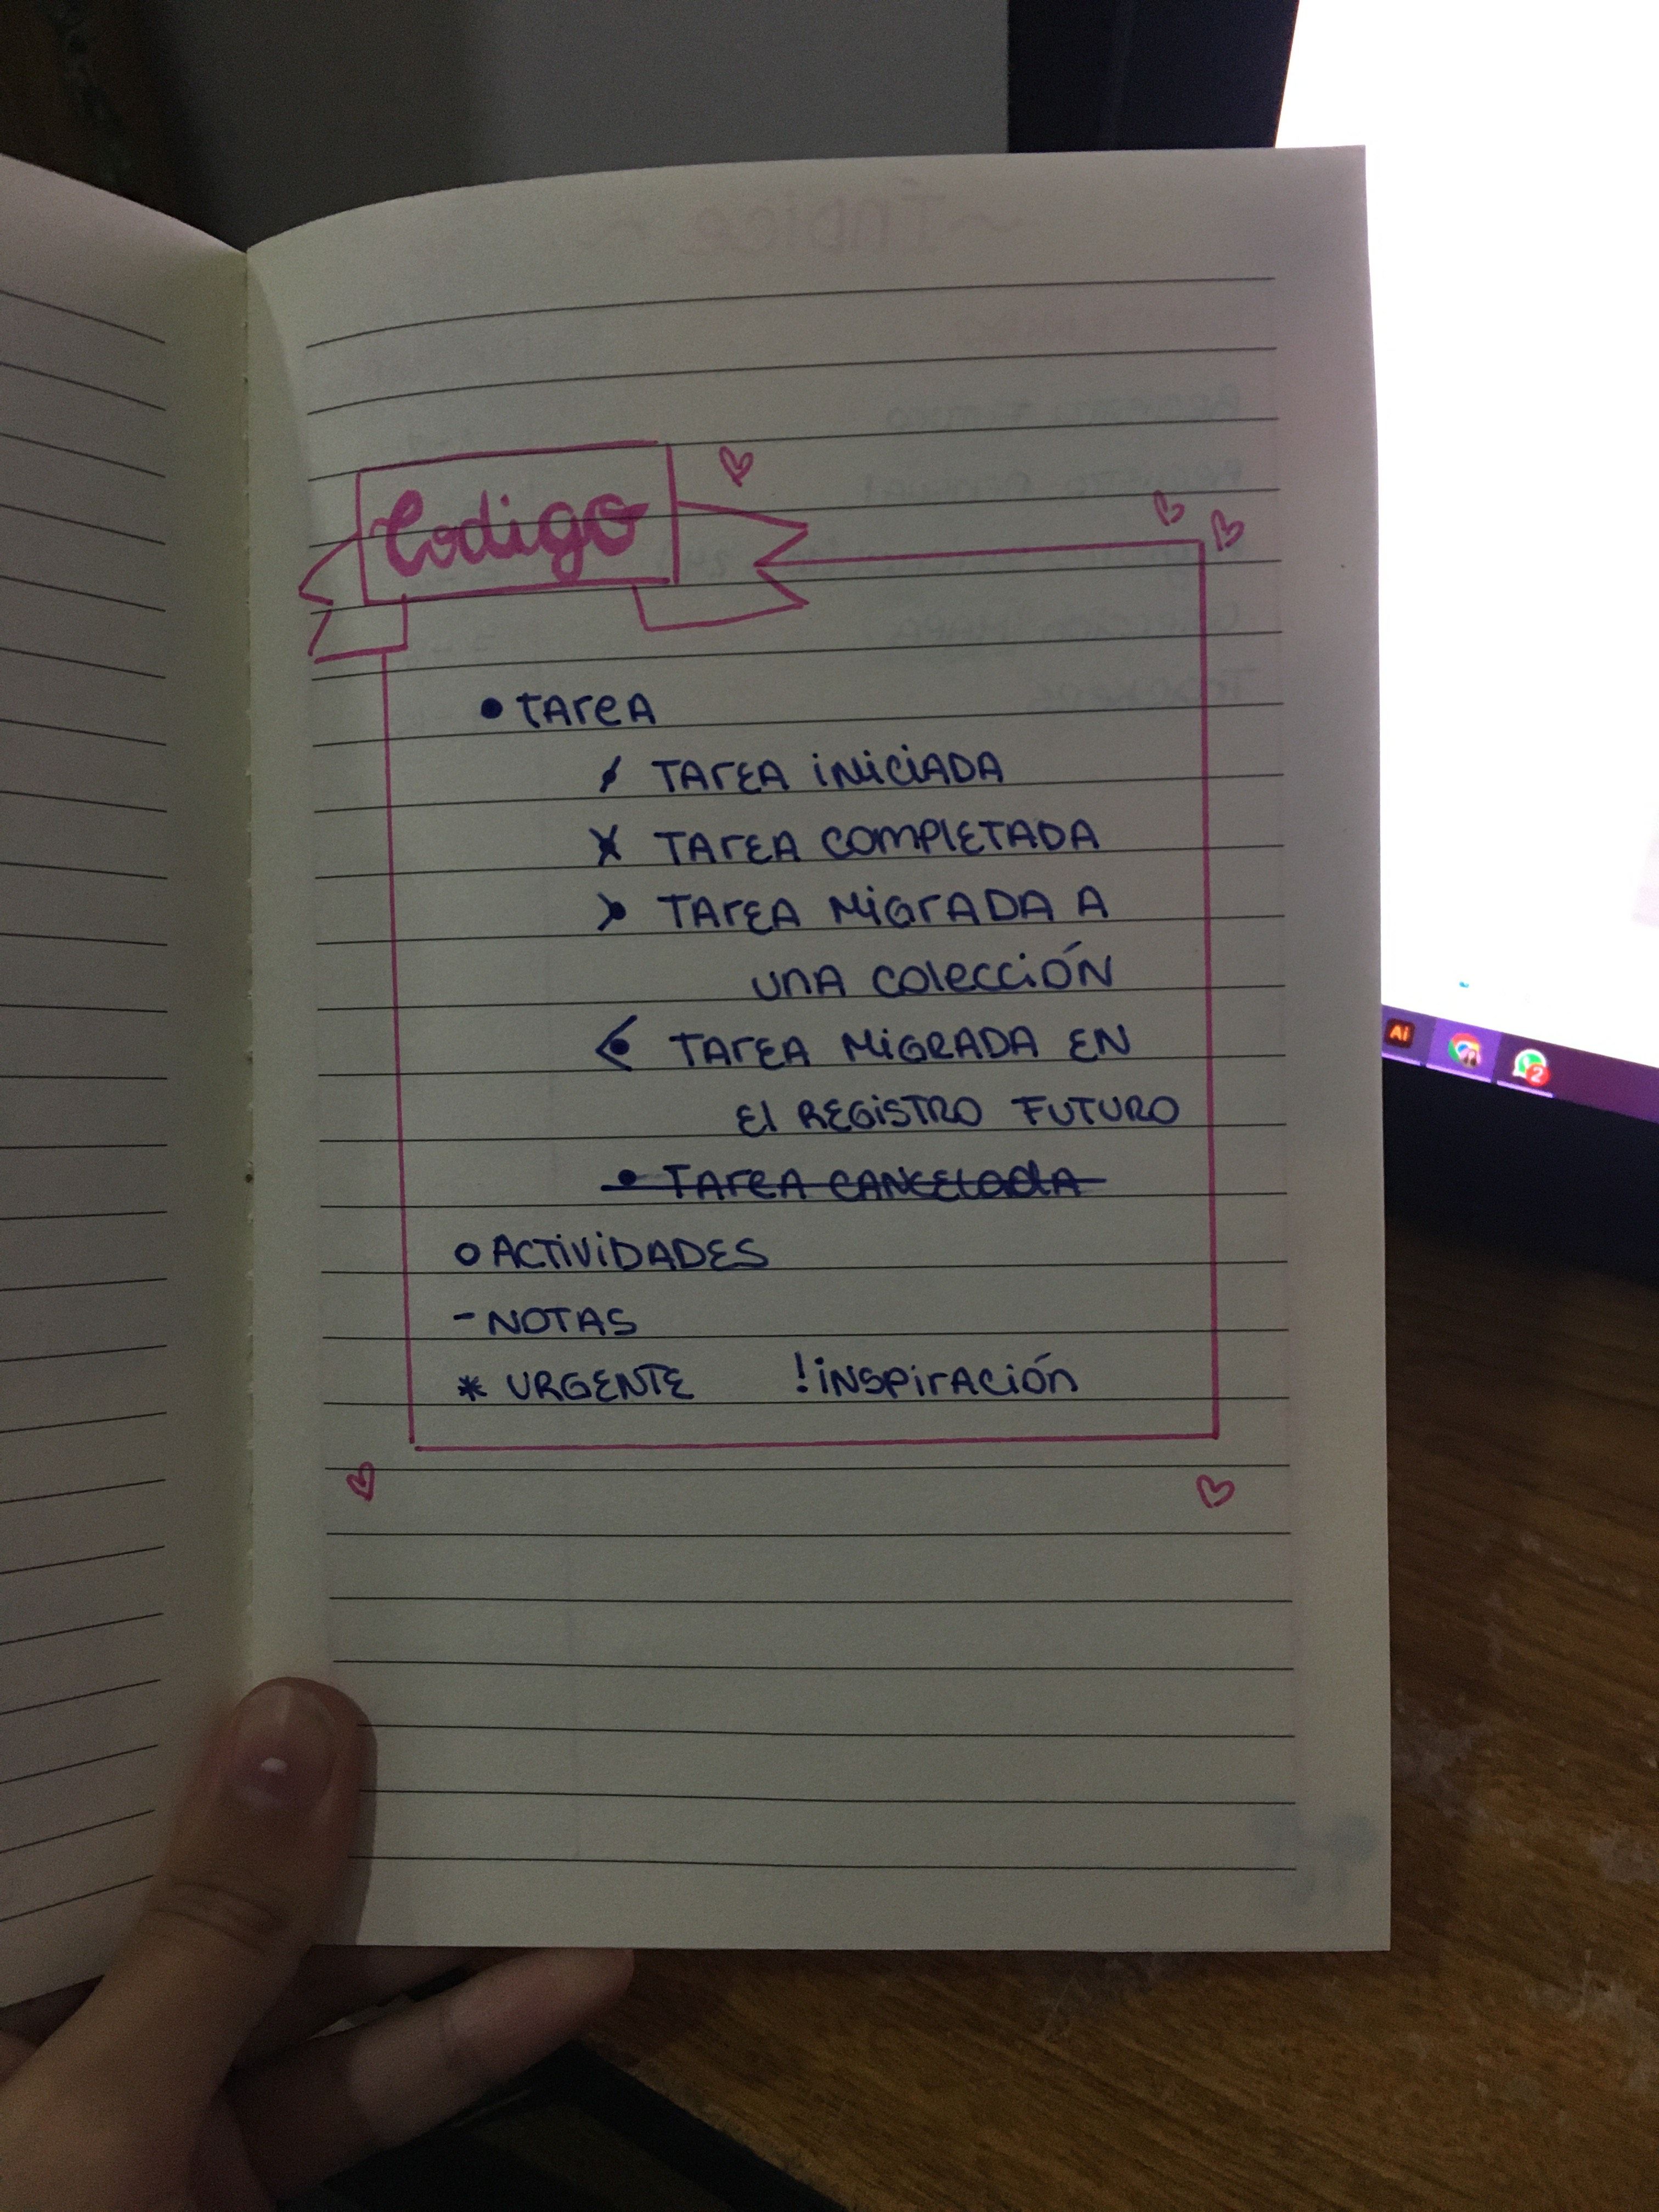 Indice
Codigo
• Tarea
/ Tarea iniciada
X Tarea completada
> Tarea migrada a
una colección
< Tarea migrada en
el registro futuro
• Tarea cancelada
o Actividades
- Notas
* Urgente ! inspiración
Ai
2